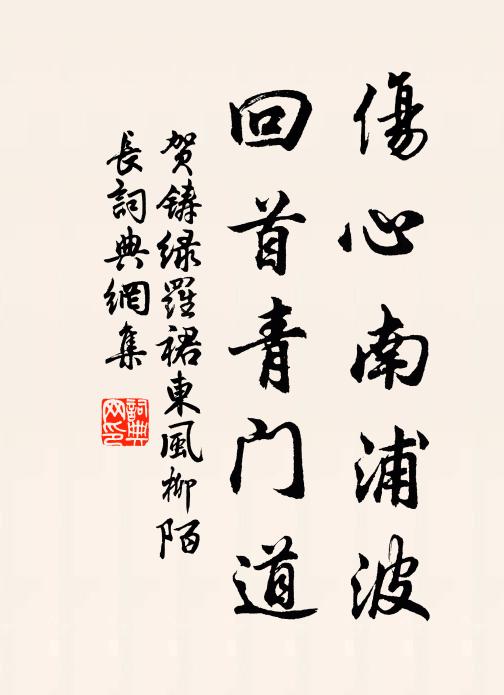 傷心南浦波
回首青门道
贺鑄绿羅裙東風柳陌
長詞典網集
詞典网印